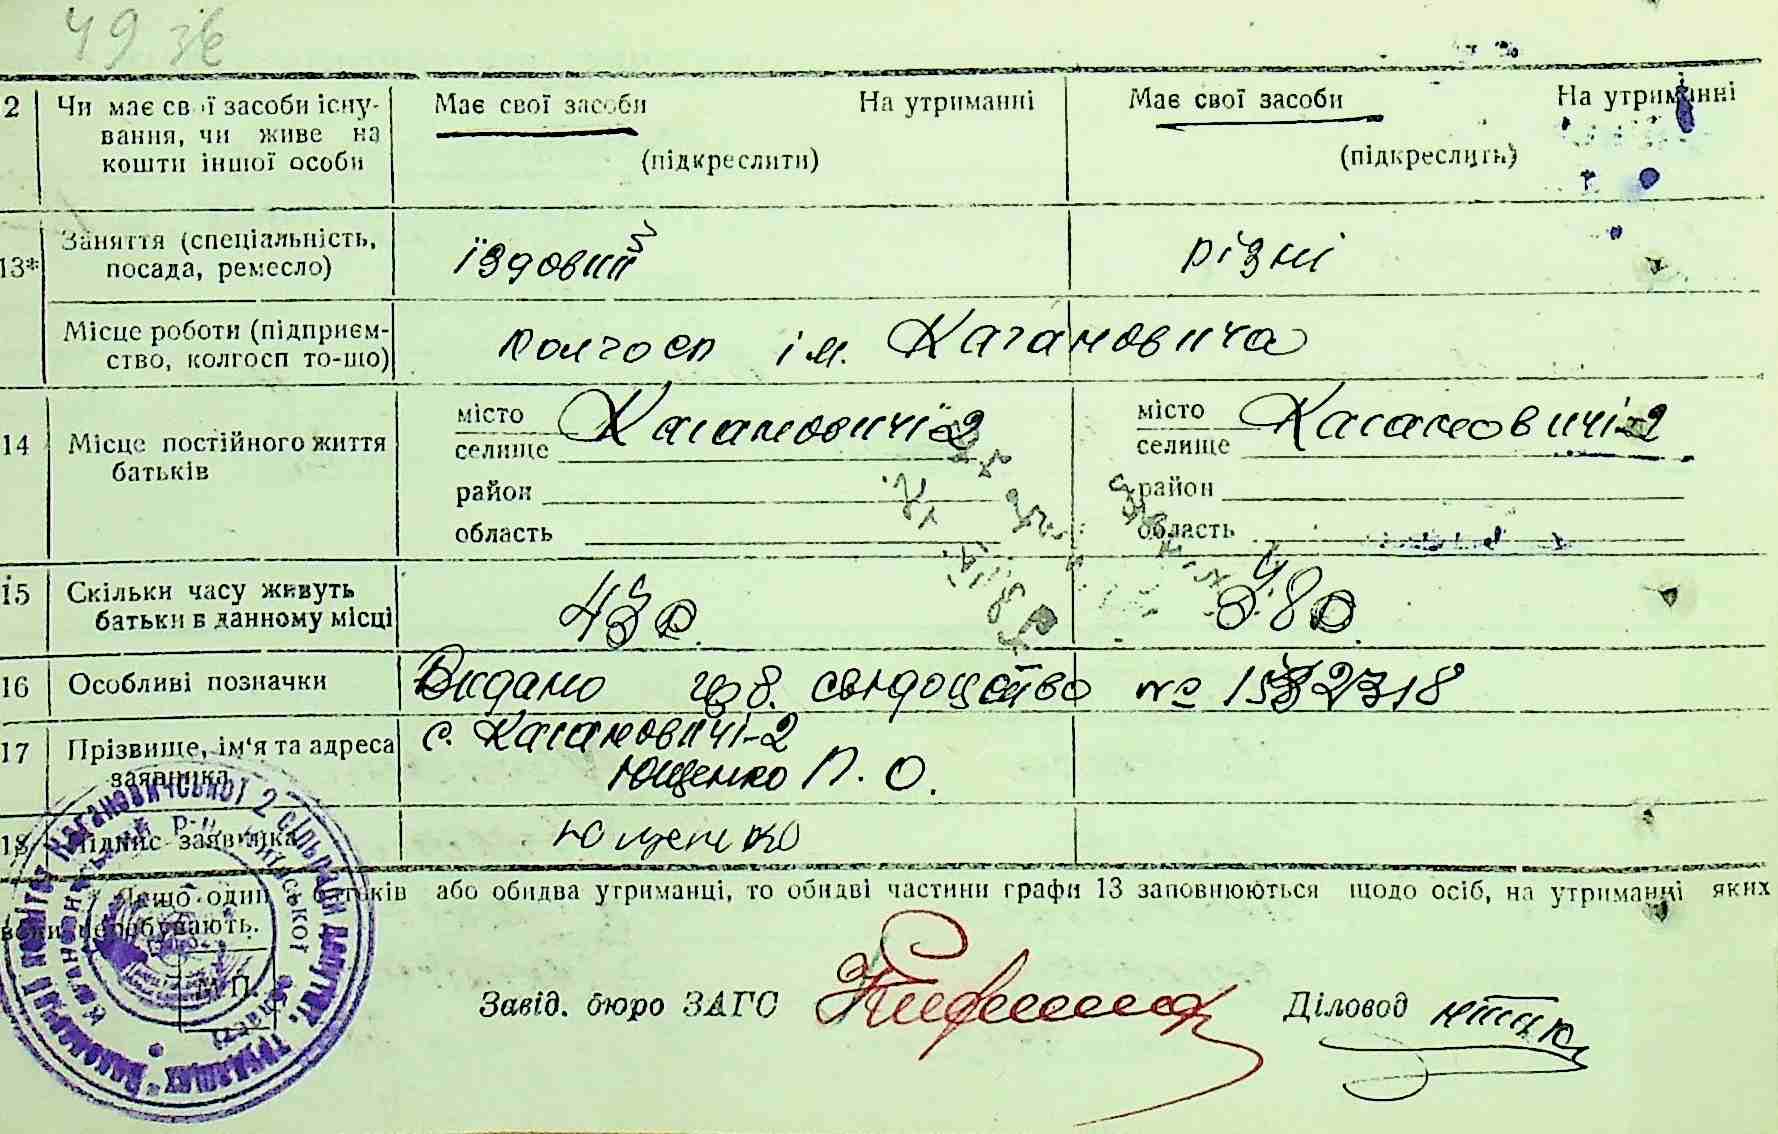 49 зв
2 Чи має свої засоби існу- Має свої засоби На утриманні Має свої засоби На утриманні
вання, чи живе на
кошти іншої особи (підкреслити) (підкреслить)
13* Заняття (спеціальність, їздовий різні
посада, ремесло)
Місце роботи (підприєм- колгосп ім. Кагановича
ство, колгосп то-що)
14 Місце постійного життя місто Кагановичі-2 місто Кагановичі-2
батьків селище селище
район район
область область
15 Скільки часу живуть
батьки в данному місці
16 Особливі позначки Видано свидоцтво №
17 Прізвище, ім'я та адреса с. Кагановичі-2
заявника Ющенко П. О.
18 Підпис заявника Ющенко
Якщо один батьків або обидва утриманці, то обидві частини графи 13 заповнюються щодо осіб, на утриманні яких
вони перебувають.
М.П.
Завід. бюро ЗАГС Діловод
Виконавчий комітет Кагановичської 2 сільради депутат. трудящих
Кагановичський р-н Київської області